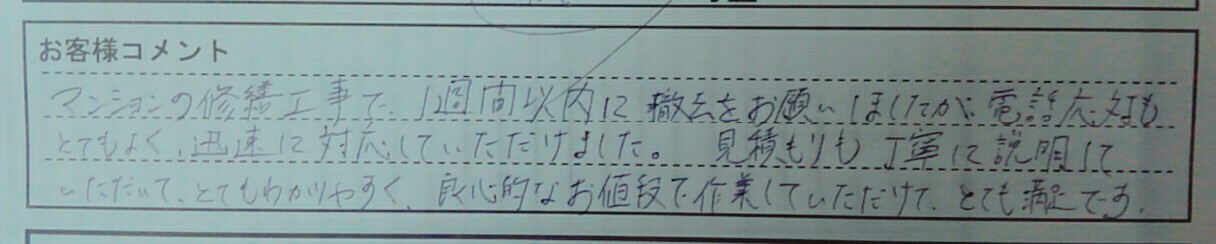 お客様コメント
マンションの修繕工事で、1週間以内に撤去をお願いしましたが、電話応対も
とてもよく、迅速に対応していただけました。 見積もりも丁寧に説明して
いただいて、とてもわかりやすく、良心的なお値段で作業していただけて、とても満足です。